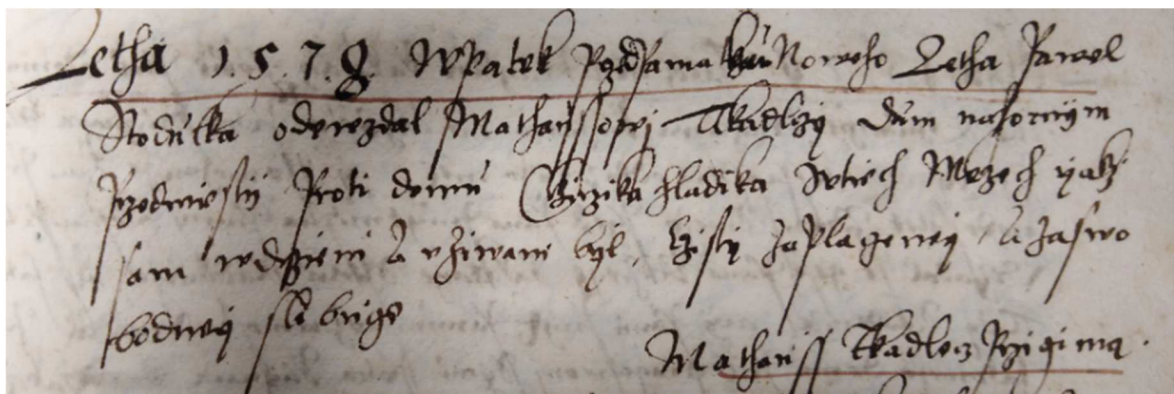 Letha 1.5.7.8. W Patek Przed Pamatkau Noweho Letha Pawel
Stodulka odewzdal Mathaussowj Tkadlczy dum na hornym
Przedmiesty Proti domu Girzika hladika w tiech Mezech yakz
sam w drzieni A vziwani byl, Czisty Zaplaceny A Za swo
bodny slibuge
Mathauss Tkadlecz Przigima.